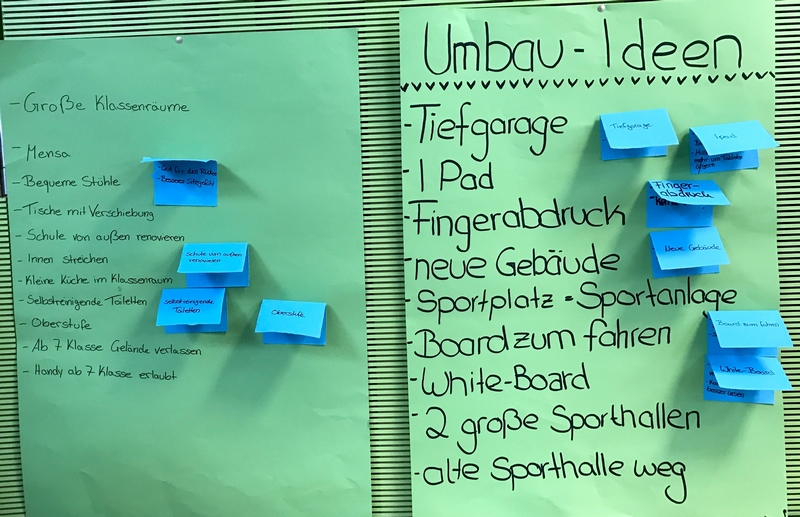 - Große Klassenräume
- Mensa
- Bequeme Stühle
- Tische mit Verschiebung
- Schule von außen renovieren
- Innen streichen
- Kleine Küche im Klassenraum
- Selbstreinigende Toiletten
- Oberstufe
- Ab 7 Klasse Gelände verlassen
- Handy ab 7 Klasse erlaubt
- Gut für den Rücken
- Besseres Sitzgefühl
Schule von außen
renovieren
selbstreinigende
Toiletten
Oberstufe
Umbau - Ideen
- Tiefgarage
- I Pad
- Fingerabdruck
- neue Gebäude
- Sportplatz = Sportanlage
- Board zum fahren
- White-Board
- 2 große Sporthallen
- alte Sporthalle weg
Tiefgarage
Ipad
Finger-
abdruck
Neue Gebäude
Board zum fahren
White-Board